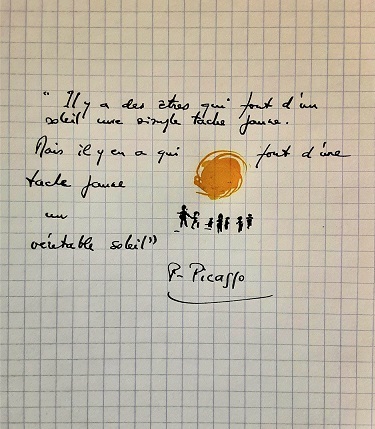 “ Il y a des êtres qui font d'un
soleil une simple tache jaune.
Mais il y en a qui font d'une
tache jaune
un
véritable soleil”
P. Picasso